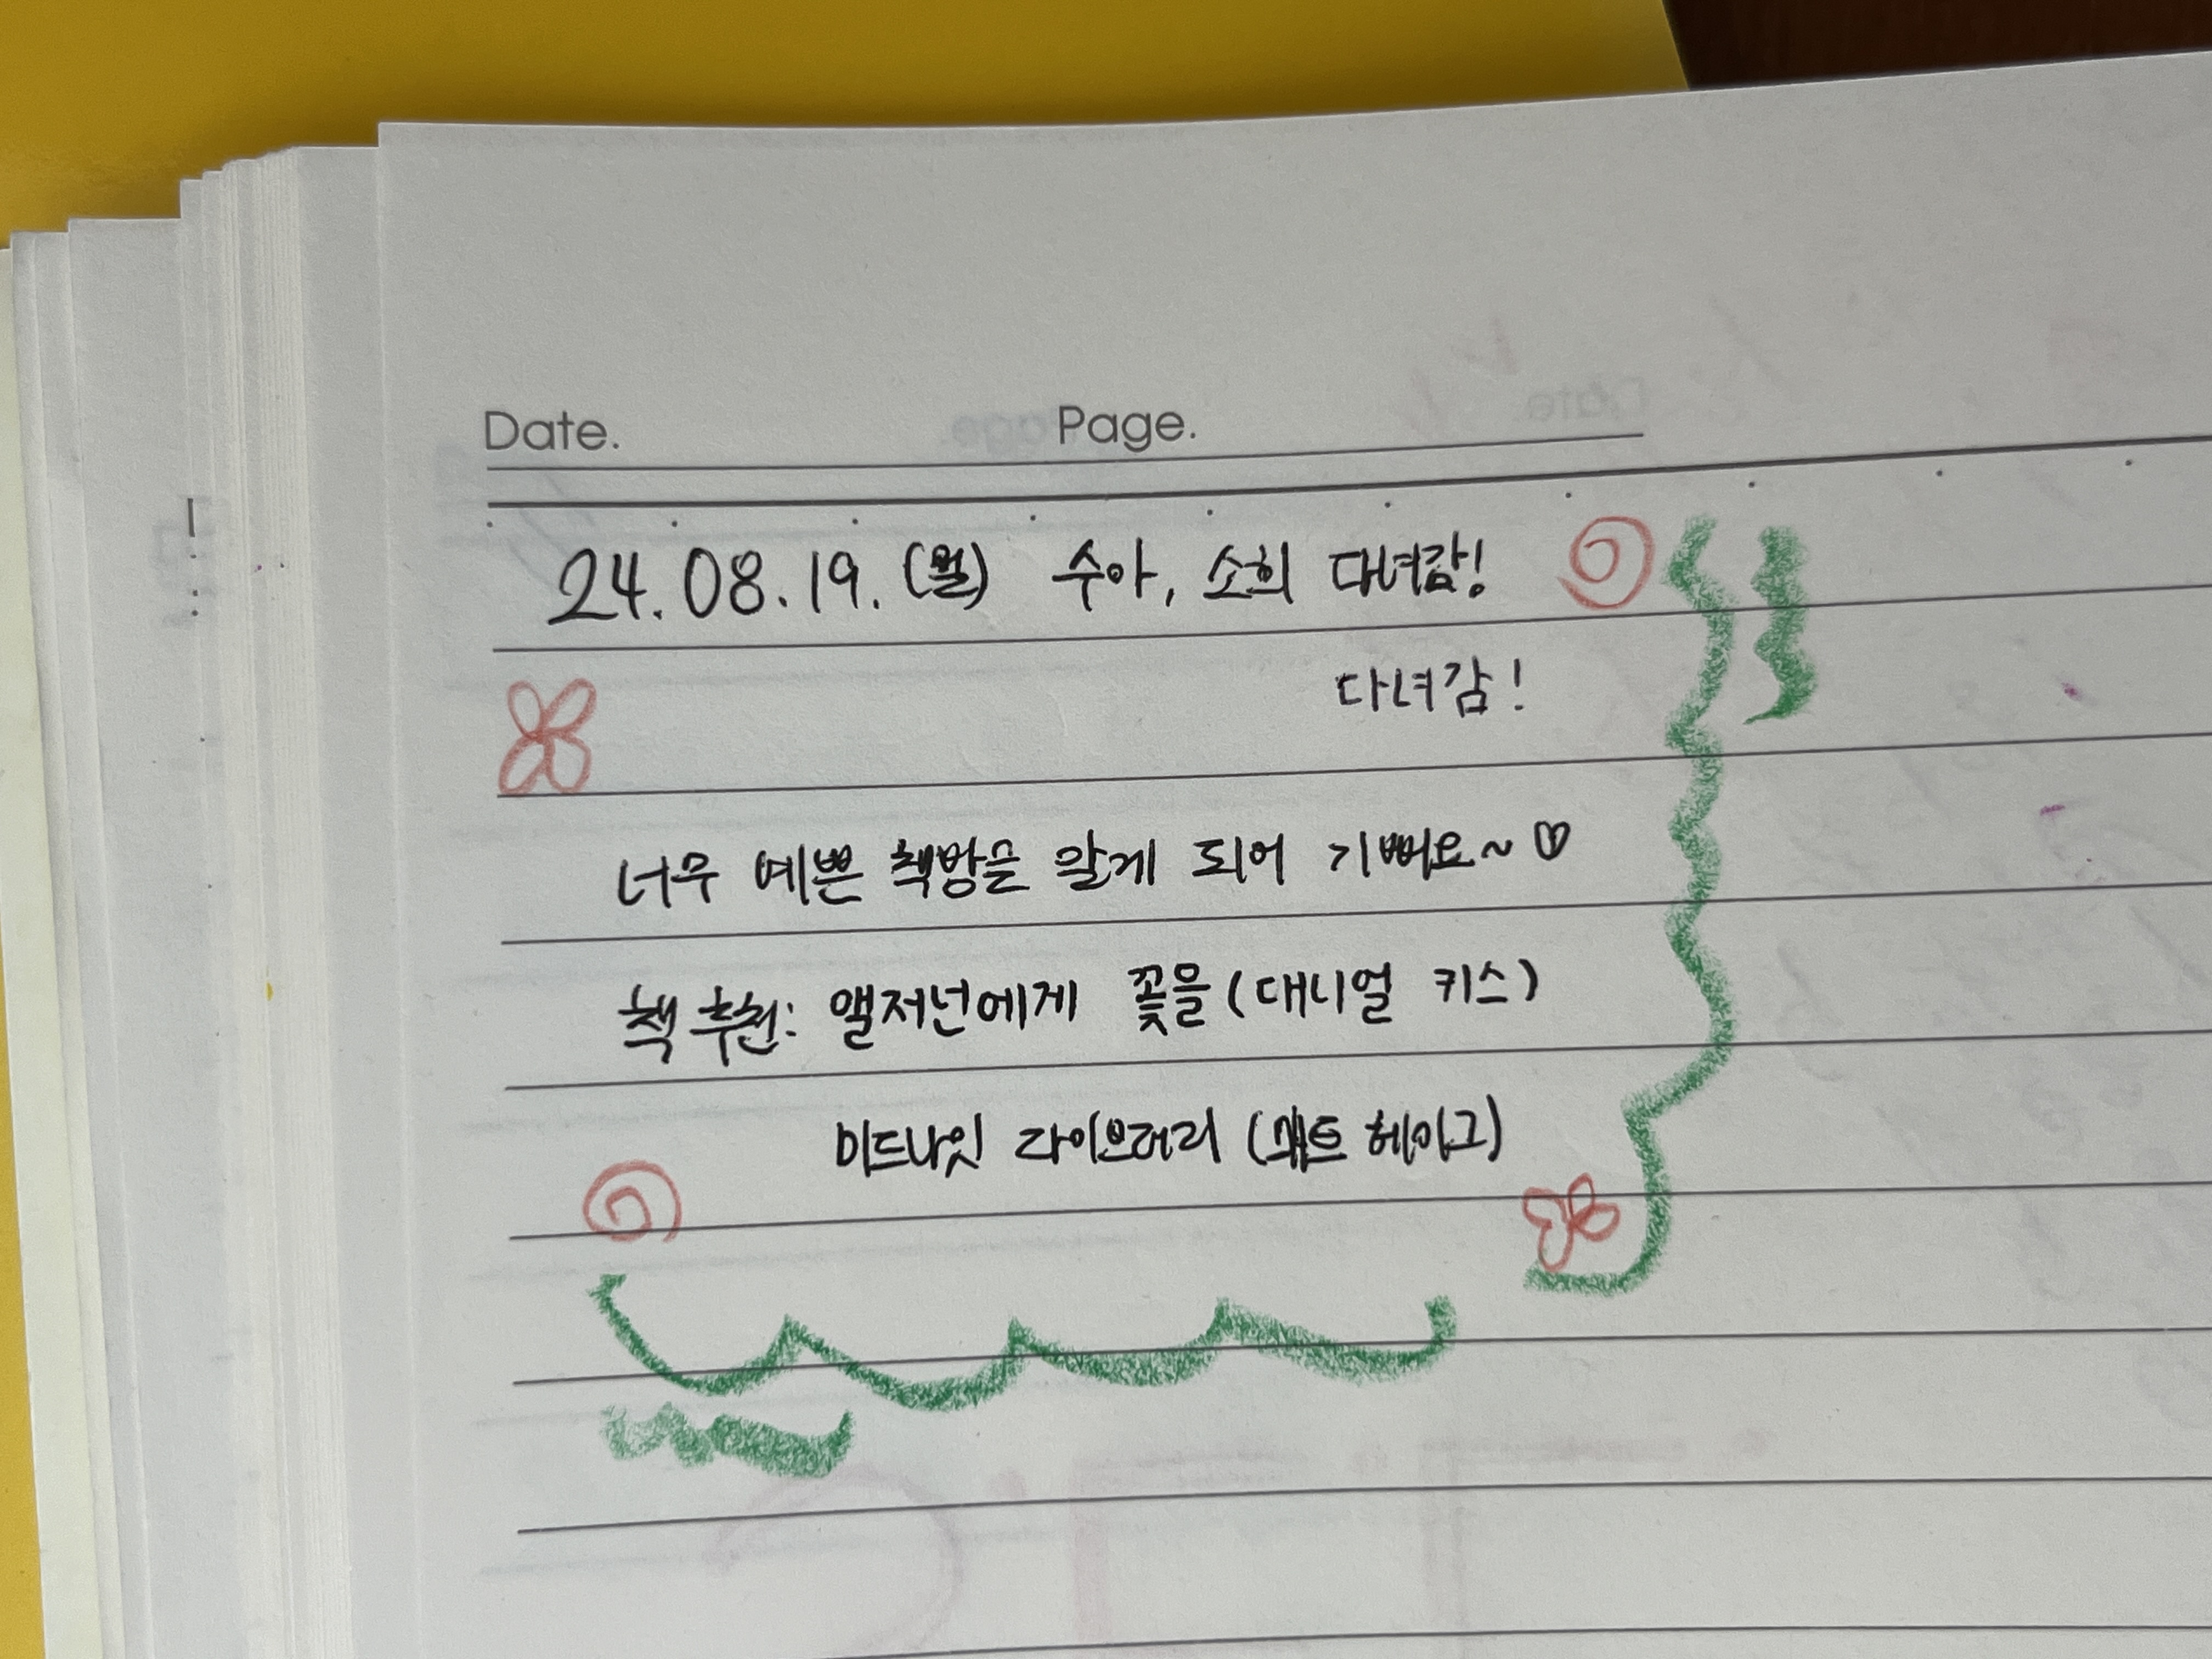 Date. Page.
24.08.19.(월) 수아, 소희 다녀감!
다녀감!
너무 예쁜 책방을 알게 되어 기뻐요~♡
책 추천: 앨저넌에게 꽃을 (대니얼 키스)
미드나잇 라이브러리 (매트 헤이그)